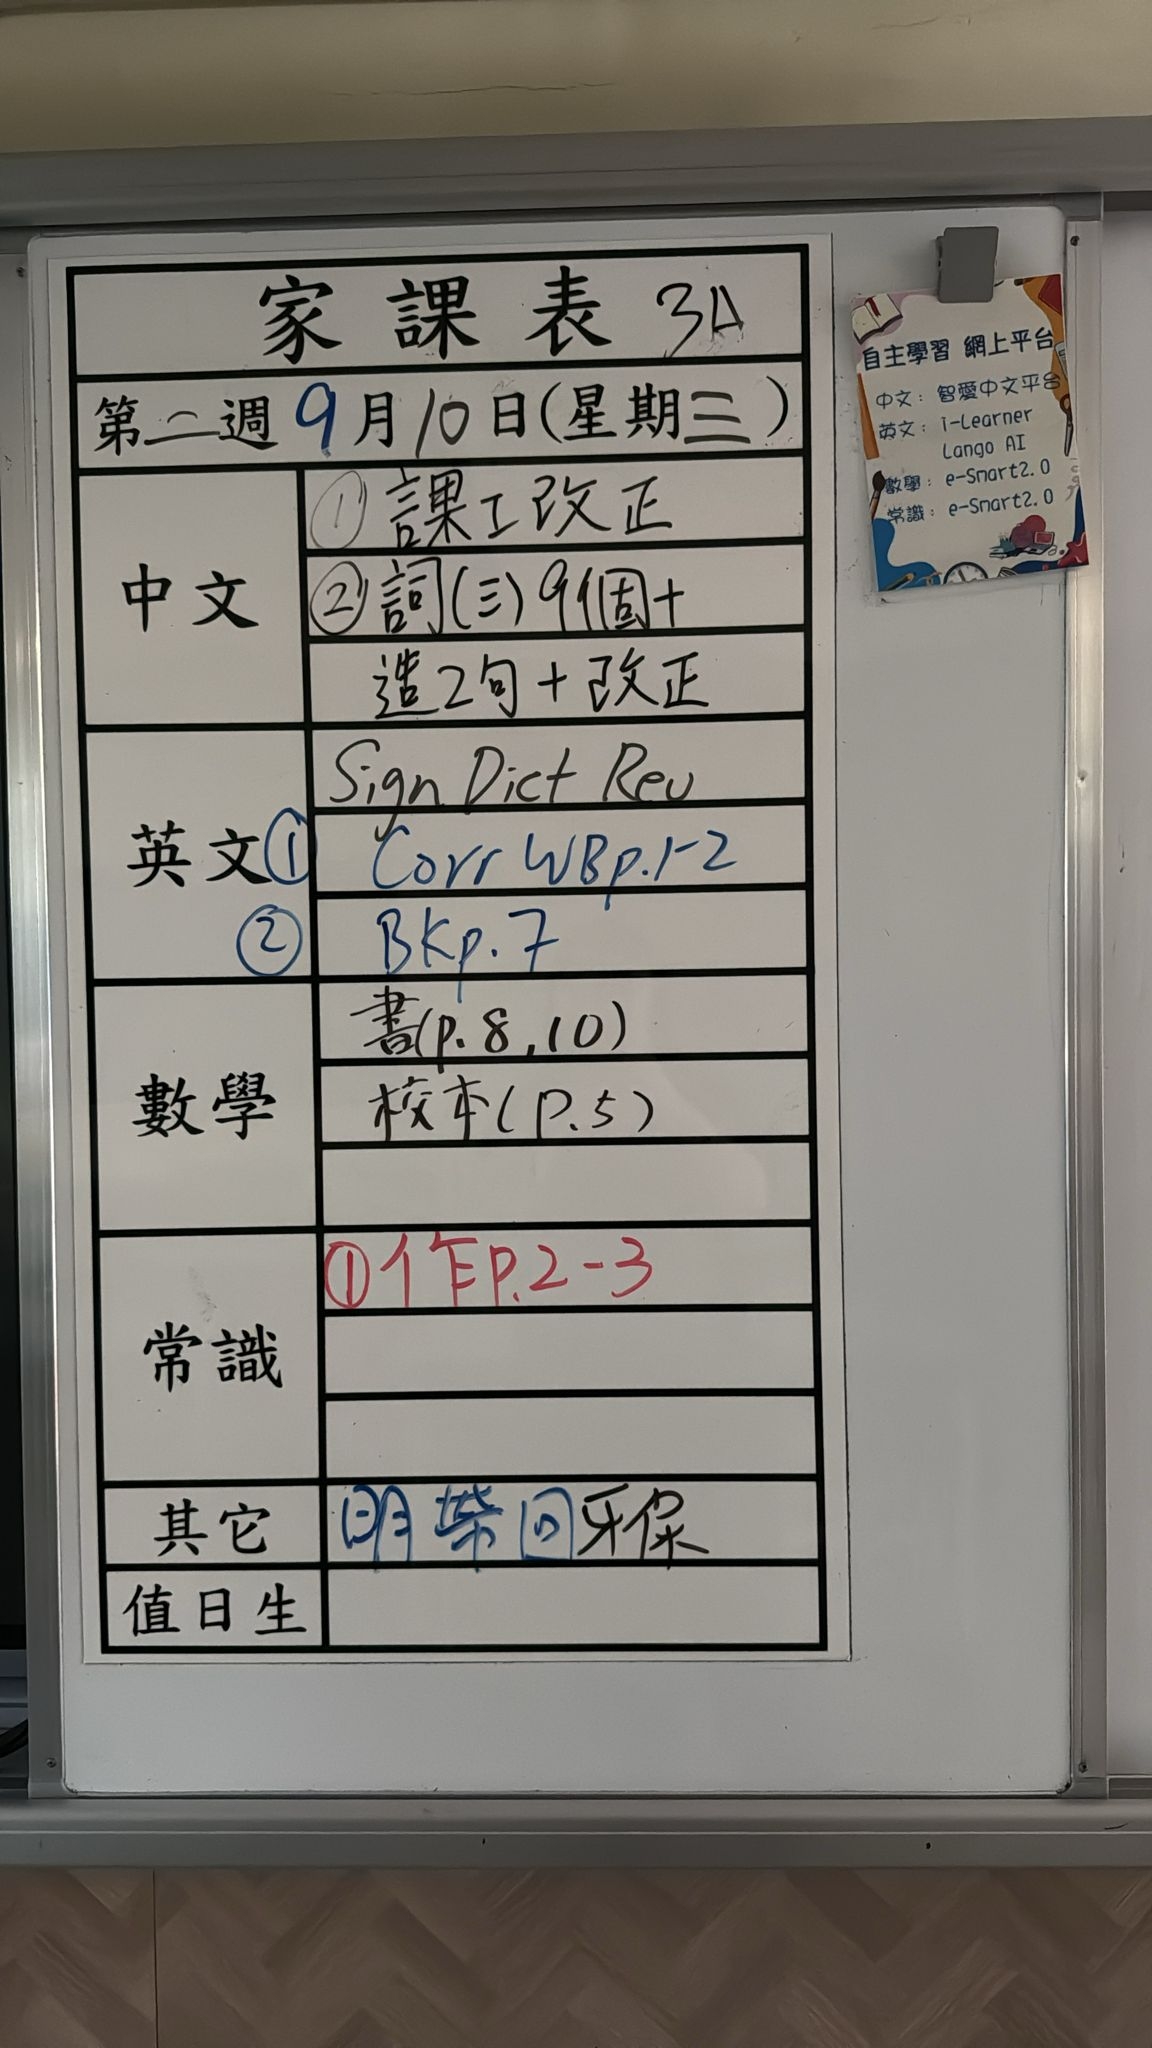 家課表 3A
第二週 9月10日(星期三)
中文
① 課工改正
② 詞(三)9個+
造2句+改正
英文
Sign Dict Rev
① Corr WBp.1-2
② BKp.7
數學
書(p.8,10)
校本(P.5)
常識
① 作P.2-3
其它
明 帶 回 牙保
值日生
自主學習 網上平台
中文: 智愛中文平台
英文: i-Learner
Lango AI
數學: e-Smart2.0
常識: e-Smart2.0